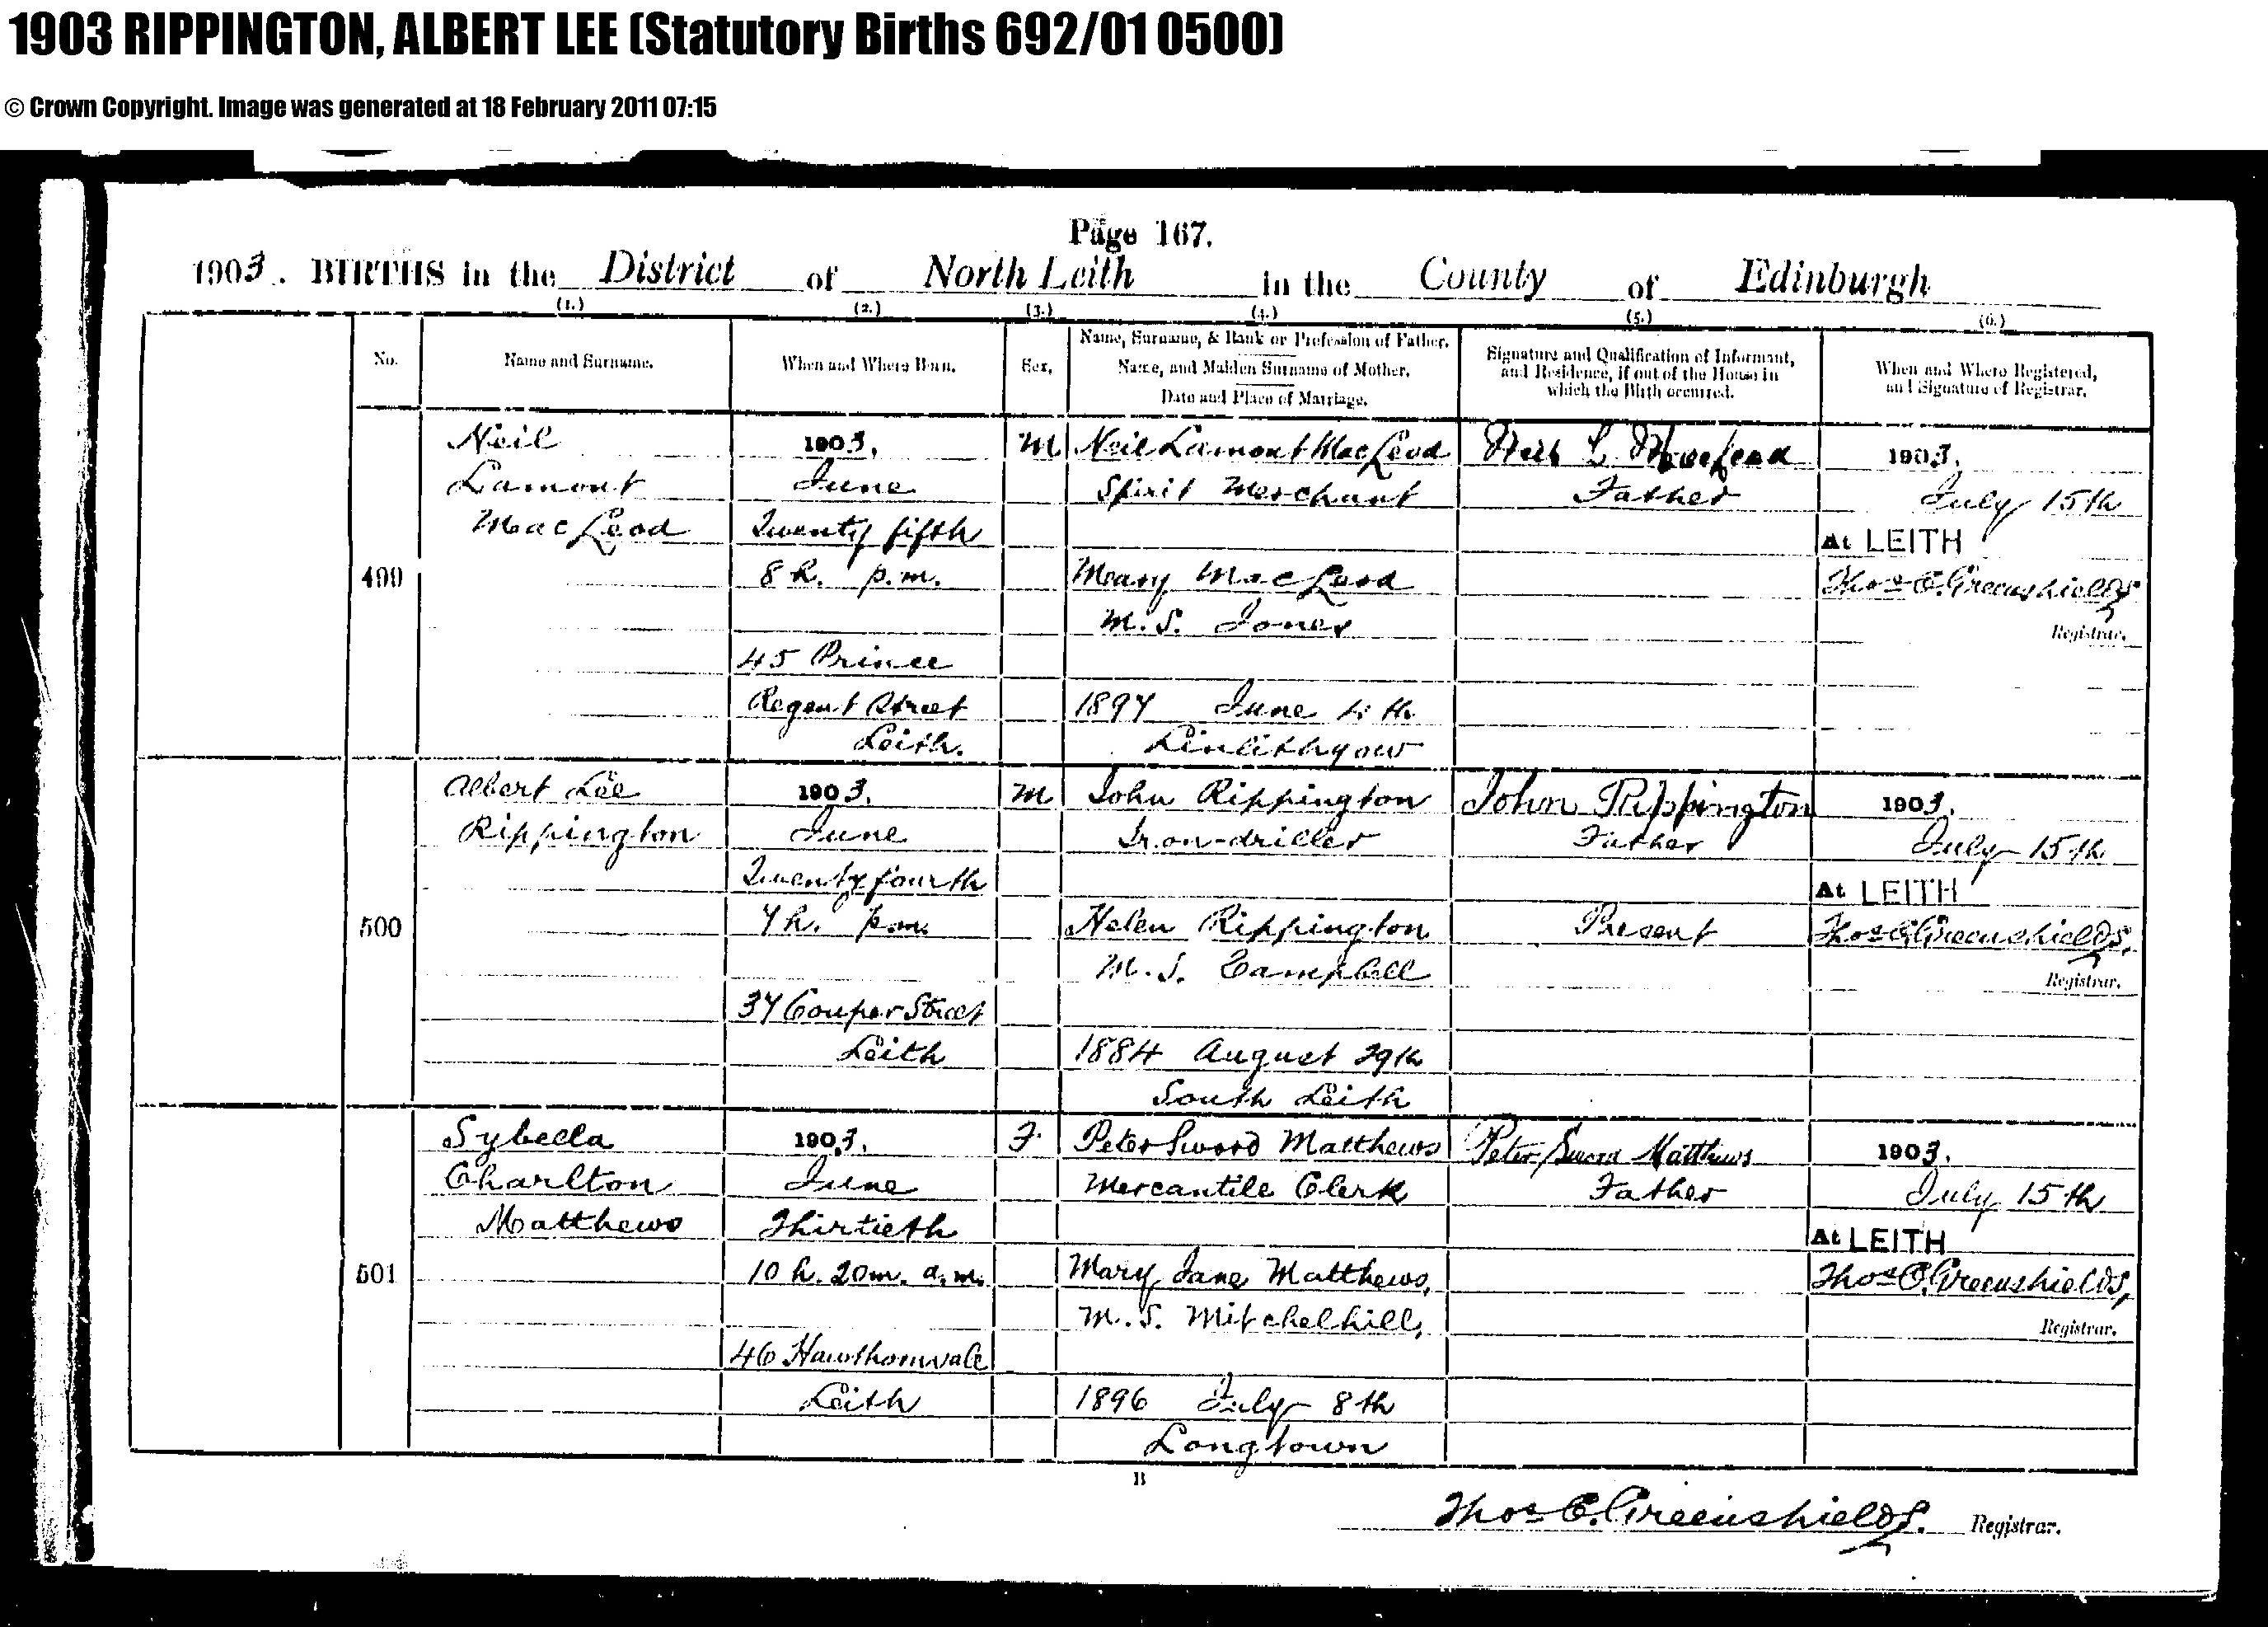 1903 RIPPINGTON, ALBERT LEE (Statutory Births 692/01 0500)
© Crown Copyright. Image was generated at 18 February 2011 07:15
Page 167.
1903. BIRTHS in the District of North Leith in the County of Edinburgh
(1.) (2.) (3.) (4.) (5.) (6.)
No.
Name and Surname.
When and Where Born.
Sex.
Name, Surname, & Rank or Profession of Father.
Name, and Maiden Surname of Mother.
Date and Place of Marriage.
Signature and Qualification of Informant,
and Residence, if out of the House in
which the Birth occurred.
When and Where Registered,
and Signature of Registrar.
499
Neil
Lamont
MacLeod
1903.
June
Twenty fifth
8 h. p.m.
45 Prince
Regent Street
Leith.
M
Neil Lamont MacLeod
Spirit Merchant
Mary MacLeod
M.S. Jones
1897 June
Linlithgow
Neil L. MacLeod
Father
1903.
July 15th
At LEITH
Thos C. Greenshields
Registrar.
500
Albert Lee
Rippington
1903.
June
Twenty fourth
7 h. p.m.
37 Couper Street
Leith
M
John Rippington
Iron-driller
Helen Rippington
M.S. Campbell
1884 August 29th
South Leith
John Rippington
Father
Present
1903.
July 15th
At LEITH
Thos C. Greenshields.
Registrar.
501
Sybella
Charlton
Matthews
1903.
June
Thirtieth
10 h. 20 m. a.m.
46 Hawthornvale
Leith
F.
Peter Sword Matthews
Mercantile Clerk
Mary Jane Matthews,
M.S. Mitchelhill,
1896 July 8th
Longtown
Peter Sword Matthews
Father
1903.
July 15th
At LEITH
Thos C. Greenshields,
Registrar.
B
Thos C. Greenshields. Registrar.